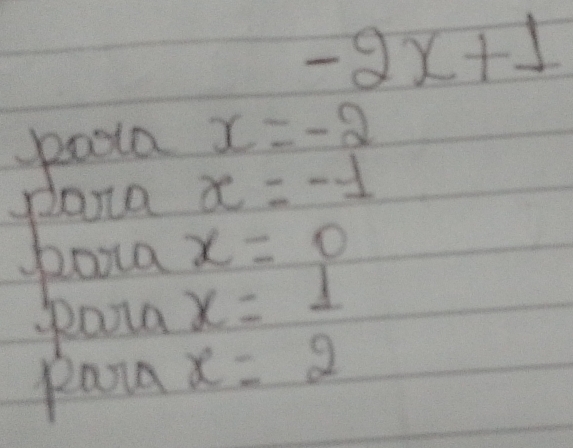 -2x+1
para x=-2
para x=-1
para x= 0
para x= 1
para x= 2